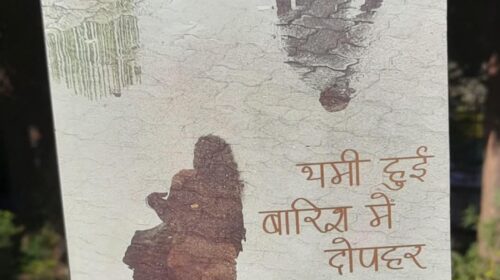 थमी हुई
बारिश में
दोपहर